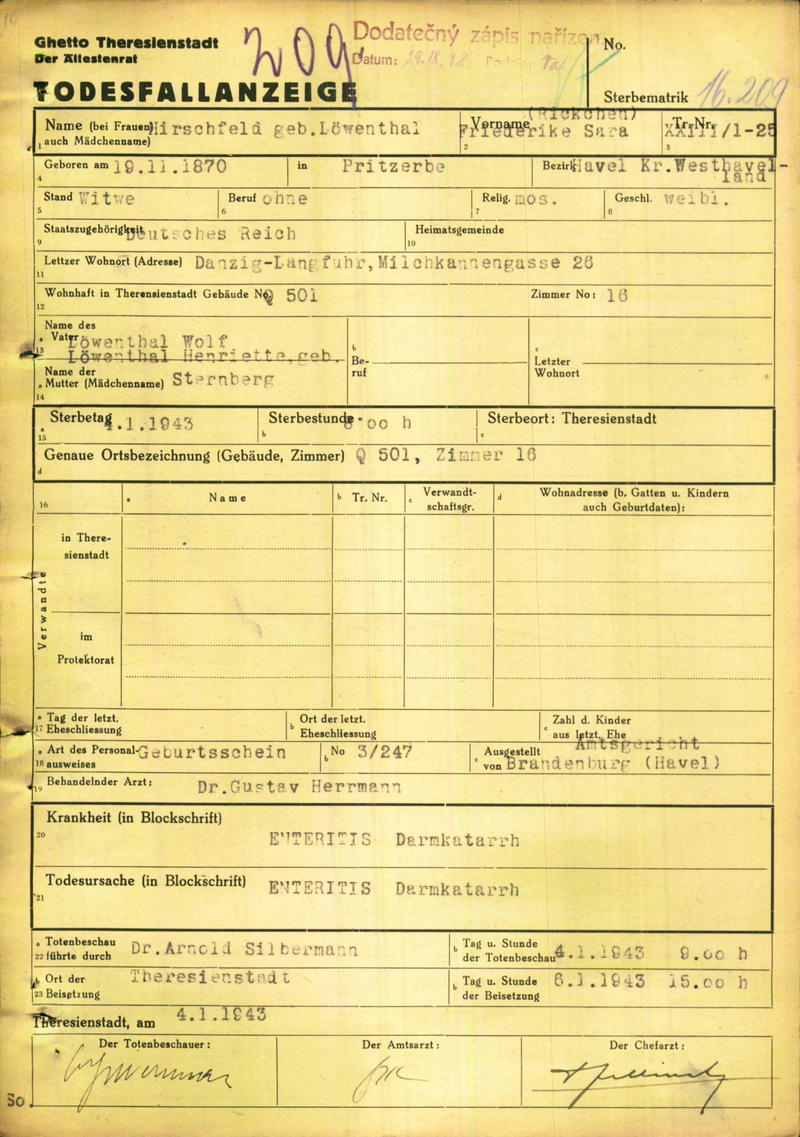 Ghetto Theresienstadt
Der Ältestenrat
TODESFALLANZEIGE
Dodatečný zápis nařízen
Datum:
No.
Sterbematrik 16.209
Name (bei Frauen auch Mädchenname) Hirschfeld geb.Löwenthal
1
Vorname (Rickchen) Friederike Sara
2
Tr. Nr. XXIII/1-25
3
Geboren am 19.11.1870 in Pritzerbe Bezirk Havel Kr.Westhavel-
land
4
Stand Witwe Beruf ohne Relig. mos. Geschl. weibl.
5 6 7 8
Staatszugehörigkeit Deutsches Reich Heimatsgemeinde
9 10
Lettzer Wohnort (Adresse) Danzig-Langfuhr,Milchkannengasse 26
11
Wohnhaft in Therensienstadt Gebäude No Q 501 Zimmer No: 16
12
Name des
a Vater Löwenthal Wolf
13 Löwenthal Henriette,geb.
Name der
a Mutter (Mädchenname) Sternberg
14
b
Be-
ruf
c
Letzter
Wohnort
a Sterbetag 4.1.1943 Sterbestunde Sterbeort: Theresienstadt
15 b c
Genaue Ortsbezeichnung (Gebäude, Zimmer) Q 501, Zimmer 16
d
16 a Name b Tr. Nr. c Verwandt-
schaftsgr. d Wohnadresse (b. Gatten u. Kindern
auch Geburtdaten):
Verwandte
in There-
sienstadt
im
Protektorat
a Tag der letzt.
17 Eheschliessung
b Ort der letzt.
Eheschliessung
c Zahl d. Kinder
aus letzt. Ehe
a Art des Personal-
18 ausweises Geburtsschein b No 3/247 c Ausgestellt
von Amtsgericht
Brandenburg (Havel)
19 Behandelnder Arzt: Dr.Gustav Herrmann
Krankheit (in Blockschrift)
20
ENTERITIS Darmkatarrh
Todesursache (in Blockschrift) ENTERITIS Darmkatarrh
21
a Totenbeschau
22 führte durch Dr.Arnold Silbermann b Tag u. Stunde
der Totenbeschau 4.1.1943 9.00 h
b Ort der
23 Beisetzung Theresienstadt b Tag u. Stunde
der Beisetzung 6.1.1943 15.00 h
Theresienstadt, am 4.1.1943
Der Totenbeschauer: Der Amtsarzt: Der Chefarzt:
So.